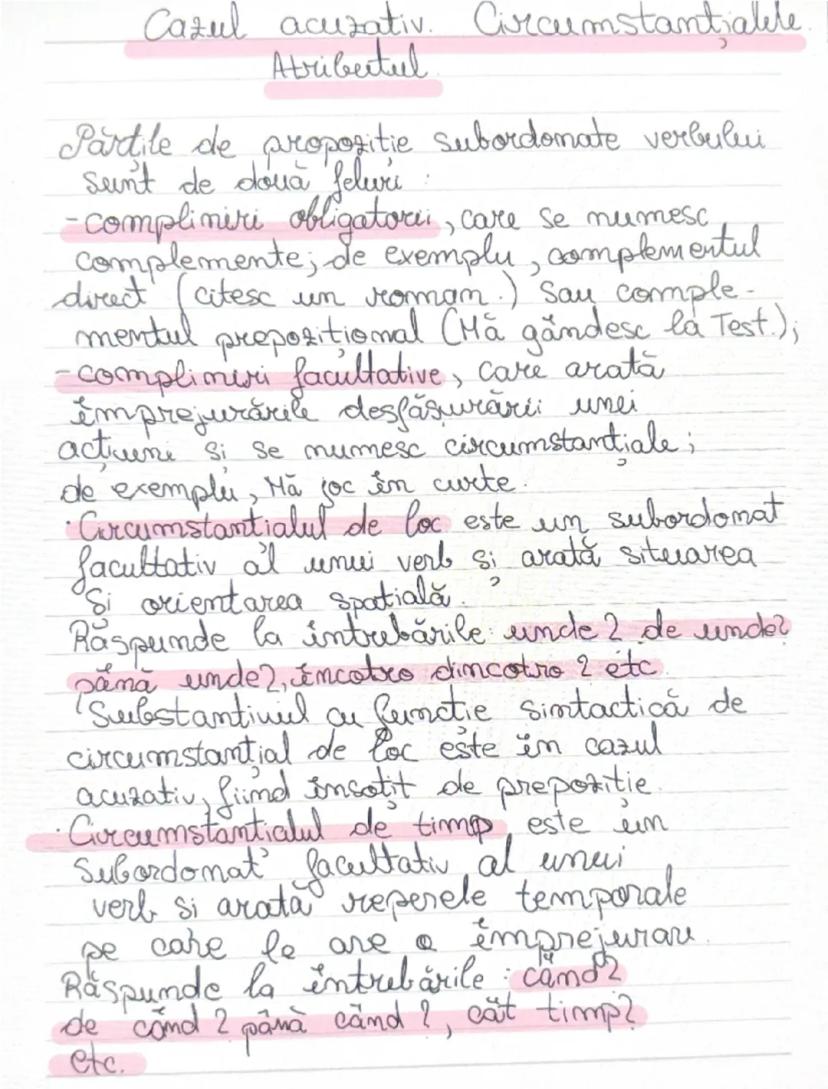 Cazul acuzativ. Circumstanțialele.
Atributul.
Părțile de propoziție subordonate verbului
sunt de două feluri :
- compliniri obligatorii, care se numesc
complemente; de exemplu, complementul
direct (citesc un roman.) sau comple-
mentul prepozițional (Mă gândesc la Test.);
- compliniri facultative, care arată
împrejurările desfășurării unei
acțiuni și se numesc circumstanțiale;
de exemplu, Mă joc în curte.
· Circumstanțialul de loc este un subordonat
facultativ al unui verb și arată situarea
și orientarea spațială.
Răspunde la întrebările: unde? de unde?
până unde?, încotro dincotro? etc.
Substantivul cu funcție sintactică de
circumstanțial de loc este în cazul
acuzativ, fiind însoțit de prepoziție.
· Circumstanțialul de timp este un
subordonat facultativ al unui
verb și arată reperele temporale
pe care le are o împrejurare.
Răspunde la întrebările : când?
de când? până când?, cât timp?
etc.